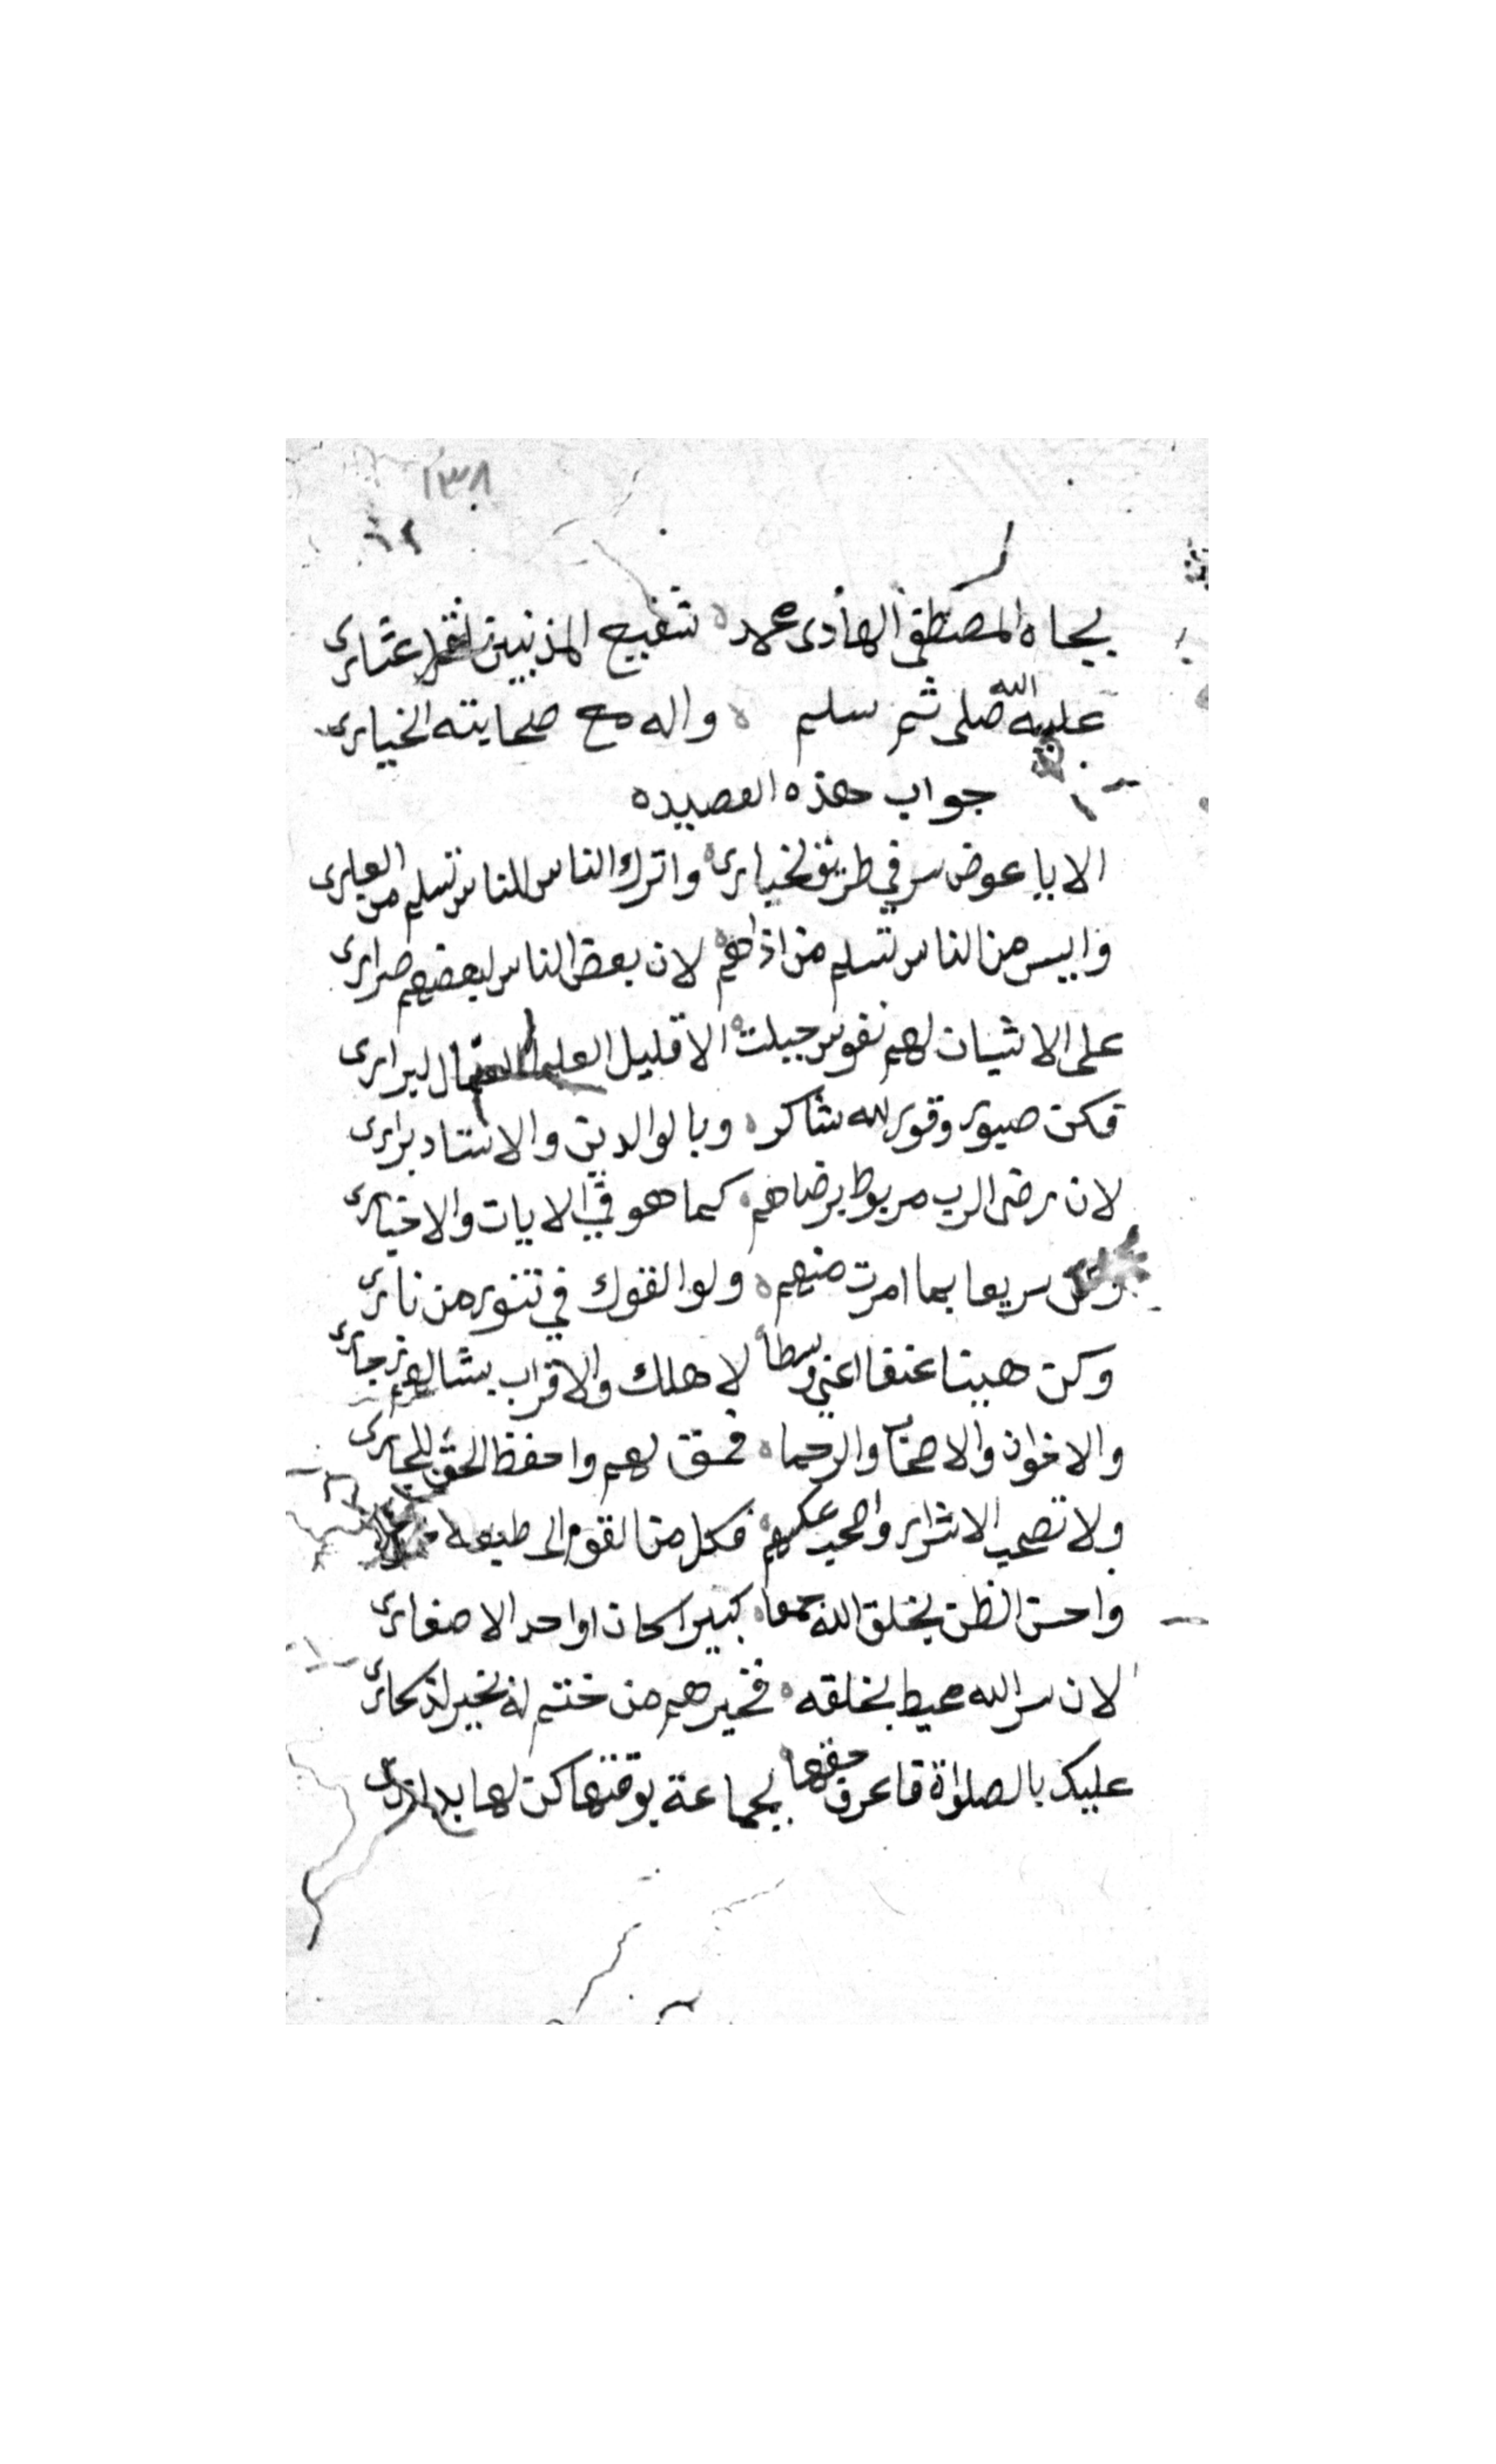 ١٣٨
بجاه المصطفى الهادى محمد شفيع المذنبين عثارى
عليه الله صلى ثم سلم واله مع صحابته الخيارى
جواب هذه القصيده
الا يا عوض سر في طريق لخيارى واترك الناس للناس تسلم من العارى
وايس من الناس تسلم من اذاهم لان بعض الناس لبعضهم ضرارى
على الاثيان لهم نفوس جبلت الا قليل العلما ال البرارى
فكن صبور وقور لله شاكر وبالوالدين والاستاد برارى
لان رضى الرب مربوط برضاهم كما هو في الايات والاخبارى
وكن سريعا بما امرت منهم ولو القوك في تنور من نارى
وكن هينا عنفا اعني وسطا لاهلك والاقراب
والاخوان والاصحاب والرحما فحقق لهم واحفظ الحق للجارى
ولا تصحب الاشرار واصحب عكسهم فكل من القوم الى طبعه
واحسن الظن بخلق الله جمعا كبيرا كان او احد الاصغارى
لان سر الله محيط بخلقه فخيرهم من ختم له بخير
عليك بالصلواة فاعرف حقها بجماعة بوقتها كن لها